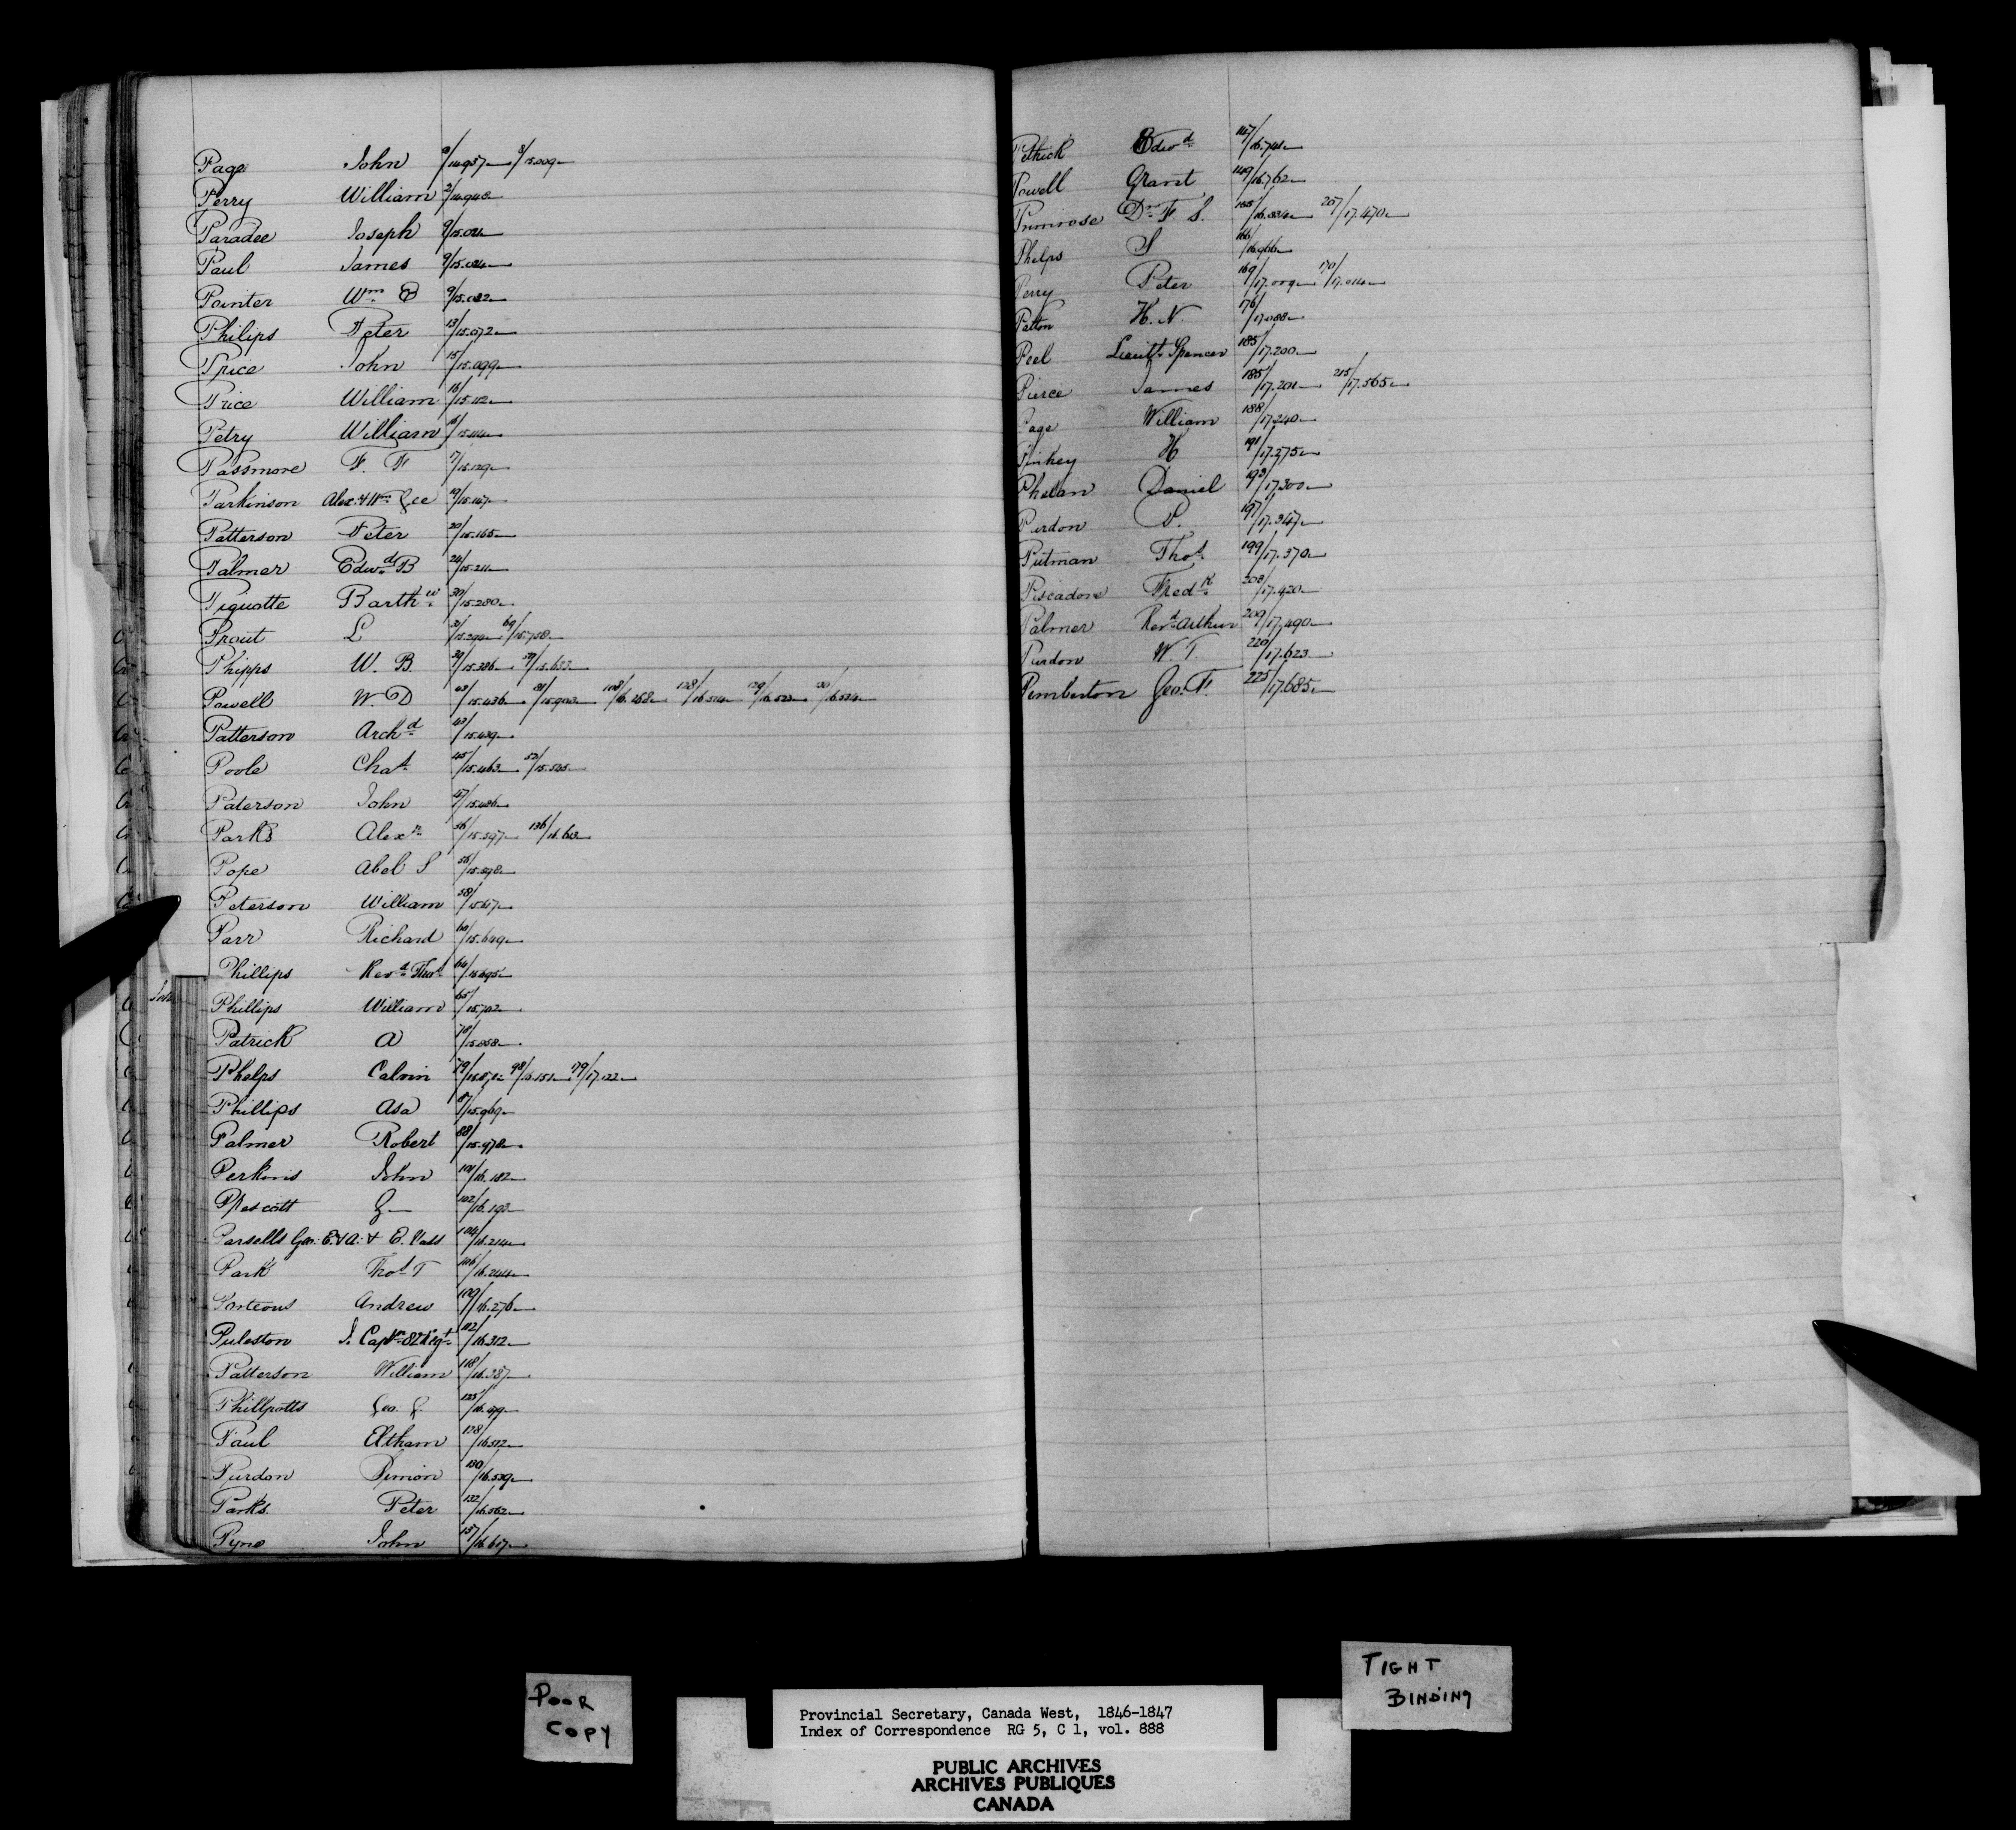 Page John /14.957 8/15.009
Perry William 2/14.940
Paradee Joseph 9/15.021
Paul James 9/15.024
Painter Wm B 9/15.032
Philips Peter 13/15.072
Price John 15/15.099
Price William 16/15.112
Petry William 16/15.114
Passmore F. F 17/15.129
Parkinson Alex. & Wm Lee 19/15.147
Patterson Peter 20/15.165
Palmer Edwd B 24/15.211
Piquotte Barthw 30/15.280
Prout L 31/15.294 69/15.758
Phipps W. B 39/15.386 59/15.633
Powell W. D 43/15.436 81/15.903 108/16.268 128/16.514 129/16.523 130/16.534
Patterson Archd 43/15.439
Poole Chas 45/15.463 52/15.545
Paterson John 47/15.486
Parks Alexr 56/15.597 136/16.613
Pope Abel S 56/15.598
Peterson William 58/15.617
Parr Richard 60/15.649
Phillips Revd Thos 64/15.695
Phillips William 65/15.702
Patrick A 78/15.858
Phelps Calvin 79/15.871 98/16.151 179/17.122
Phillips Asa 87/15.969
Palmer Robert 88/15.978
Perkins John 101/16.182
Prescott G 102/16.193
Parsells Geo. E. & A. & E. Vass 104/16.214
Park Thos T 106/16.244
Porteous Andrew 109/16.276
Puleston J. Captn 82 Regt 112/16.312
Patterson William 118/16.387
Phillpotts Geo. G. 125/16.479
Paul Eltham 128/16.512
Purdon Simon 130/16.539
Parks Peter 132/16.562
Pyne John 137/16.617
Pethick Edwd 147/16.741
Powell Grant 149/16.762
Primrose Dr F S. 155/16.834 207/17.470
Phelps S 166/16.966
Perry Peter 169/17.009 170/17.014
Patton H. N. 176/17.088
Peel Lieutt Spencer 185/17.200
Pierce James 185/17.201 215/17.565
Page William 188/17.240
Pinkey H 191/17.275
Phelan Daniel 193/17.300
Purdon P. 197/17.347
Putman Thos 199/17.370
Piscadore Fredk 203/17.420
Palmer Revd Arthur 209/17.490
Purdon W. T. 220/17.623
Pemberton Geo. F. 225/17.685
POOR
COPY
TIGHT
BINDING
Provincial Secretary, Canada West, 1846-1847
Index of Correspondence RG 5, C 1, vol. 888
PUBLIC ARCHIVES
ARCHIVES PUBLIQUES
CANADA